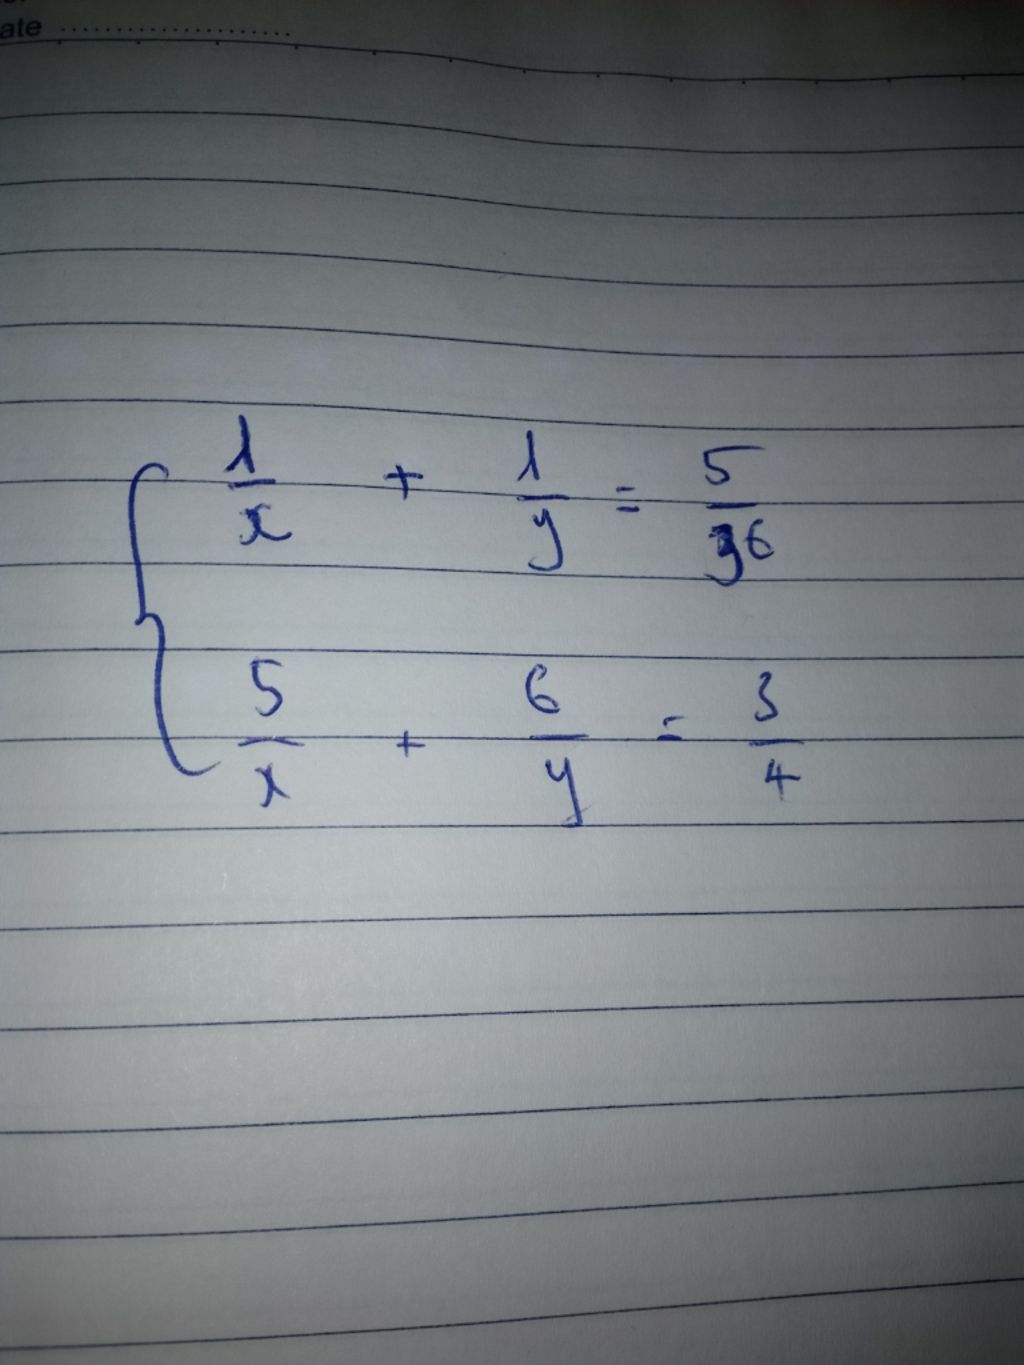 ate ......................
1/x + 1/y = 5/36
5/x + 6/y = 3/4